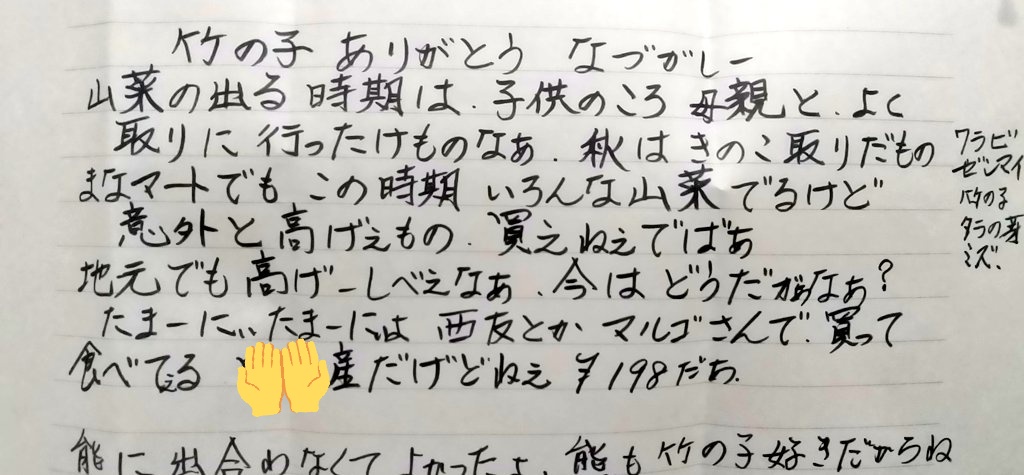 竹の子 ありがとう なづがしー
山菜の出る時期は、子供のころ 母親と、よく
取りに行ったけものなぁ、秋はきのこ取りだもの
まなマートでも この時期 いろんな山菜でるけど
意外と高げぇもの、買えねぇでばぁ
地元でも高げーしべえなぁ、今はどうだがなぁ?
たまーに、、たまーには 西友とか マルゴさんで、買って
食べてる 産だげどねぇ ¥198だち、
能に出合わなくてよかったよ、能も竹の子好きだからね
ワラビ
ゼンマイ
竹の子
タラの芽
ミズ、